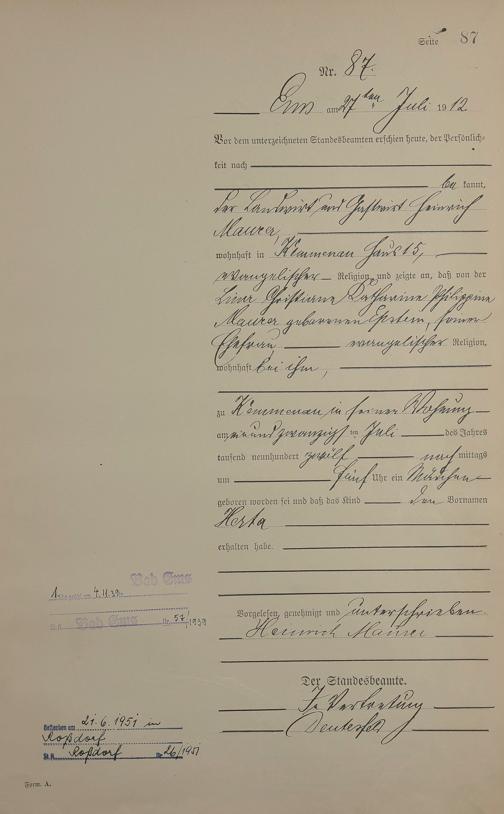 Seite 87
Nr. 87.
Ems am 27ten Juli 1912
Vor dem unterzeichneten Standesbeamten erschien heute, der Persönlich-
keit nach
be kannt,
der Landwirt und Gastwirt Heinrich
Maurer,
wohnhaft in Kemmenau Haus 15,
evangelischer Religion, und zeigte an, daß von der
Christiane Katharine Philippine
Maurer geborenen Epstein, seiner
Ehefrau evangelischer Religion,
wohnhaft bei ihm,
zu Kemmenau in seiner Wohnung
am einundzwanzigsten Juli des Jahres
tausend neunhundert zwölf nachmittags
um fünf Uhr ein Mädchen
geboren worden sei und daß das Kind den Vornamen
Herta
erhalten habe.
Vorgelesen, genehmigt und unterschrieben
Heinrich Maurer
Der Standesbeamte.
In Vertretung
1. am 4.11.39 Bad Ems
Bad Ems Nr. 57/1939
Gestorben am 21.6.1951 in
Roßdorf
St.A. Roßdorf Nr. 26/1951
Form. A.